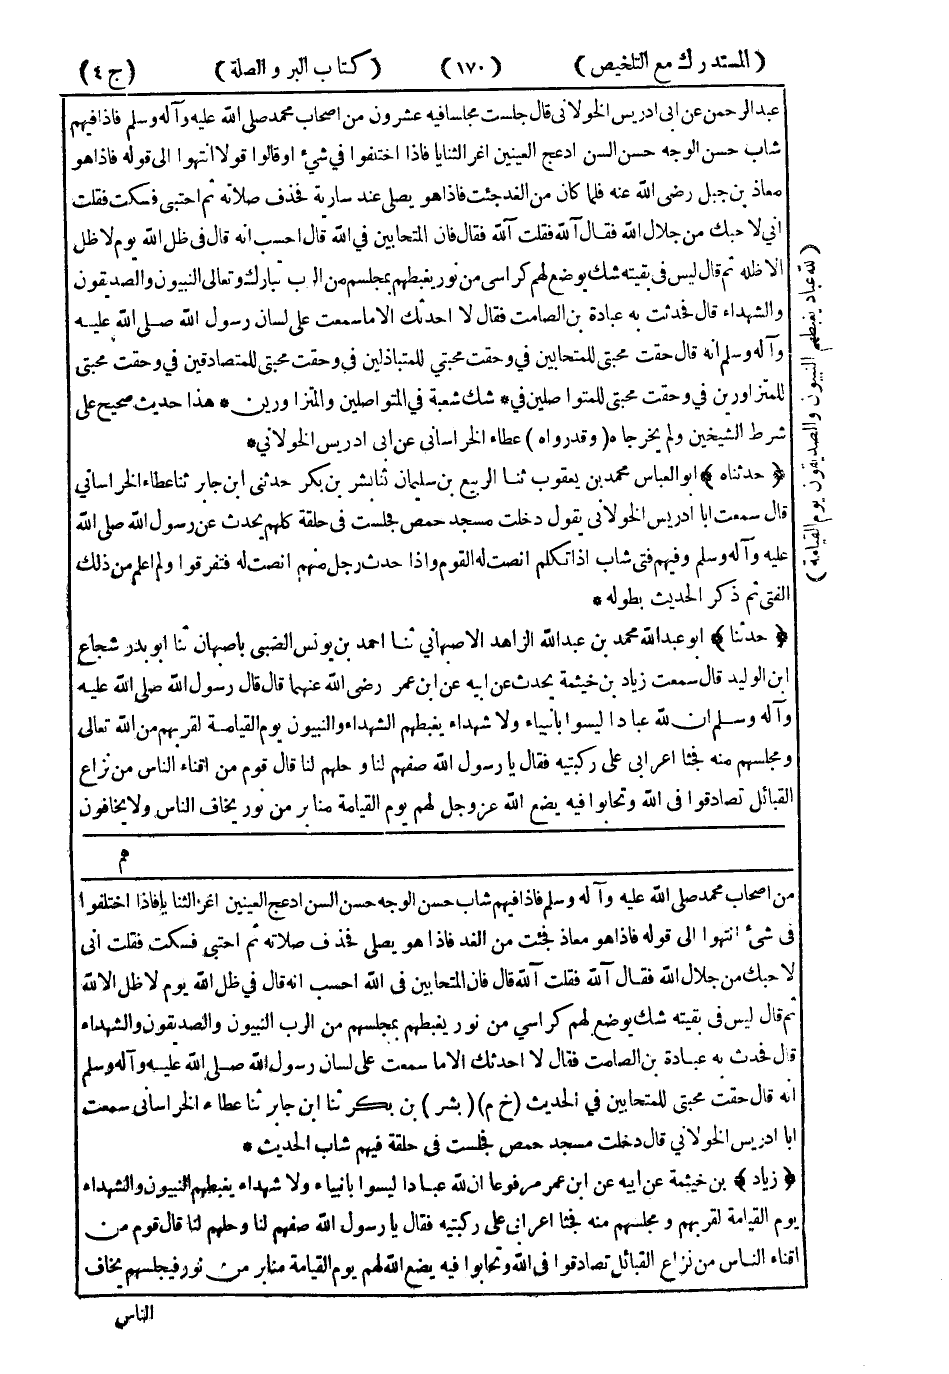 (المستدرك مع التلخيص) (١٧٠) (كتاب البر والصلة) (ج ٤)
عبدالرحمن عن ابى ادريس الخولانى قال جلست مجلسا فيه عشرون من اصحاب محمد صلى الله عليه وآله وسلم فاذا فيهم
شاب حسن الوجه حسن السن ادعج العينين اغر الثنايا فاذا اختلفوا في شئ او قالوا قولا انتهوا الى قوله فاذا هو
معاذ بن جبل رضى الله عنه فلما كان من الغد جئت فاذا هو يصلى عند سارية فحذف صلاته ثم احتبى فسكت فقلت
انى لاحبك من جلال الله فقال آلله فقلت آلله فقال فان المتحابين في الله قال احسب انه قال فى ظل الله يوم لا ظل
الا ظله ثم قال ليس فى بقيته شك يوضع لهم كراسى من نور يغبطهم بمجلسهم من الرب تبارك وتعالى النبيون والصديقون
والشهداء قال فحدثت به عبادة بن الصامت فقال لا احدثك الا ما سمعت على لسان رسول الله صلى الله عليه
وآله وسلم انه قال حقت محبتى للمتحابين في وحقت محبتي للمتباذلين في وحقت محبتى للمتصادقين في وحقت محبتى
للمتزاورين في وحقت محبتى للمتواصلين في * شك شعبة في المتواصلين والمتزاورين * هذا حديث صحيح على
شرط الشيخين ولم يخرجاه (وقد رواه) عطاء الخراسانى عن ابى ادريس الخولاني *
﴿ حدثناه ﴾ ابو العباس محمد بن يعقوب ثنا الربيع بن سليمان ثنا بشر بن بكر حدثنى ابن جابر ثنا عطاء الخراساني
قال سمعت ابا ادريس الخولانى يقول دخلت مسجد حمص فجلست فى حلقة كلهم يحدث عن رسول الله صلى الله
عليه وآله وسلم وفيهم فتى شاب اذا تكلم انصت له القوم واذا حدث رجل منهم انصت له فتفرقوا ولم اعلم من ذلك
الفتى ثم ذكر الحديث بطوله *
﴿ حدثنا ﴾ ابو عبدالله محمد بن عبدالله الزاهد الاصبهاني ثنا احمد بن يونس الضبى باصبهان ثنا ابو بدر شجاع
ابن الوليد قال سمعت زياد بن خيثمة يحدث عن ابيه عن ابن عمر رضى الله عنهما قال قال رسول الله صلى الله عليه
وآله وسلم ان لله عبادا ليسوا بأنبياء ولا شهداء يغبطهم الشهداء والنبيون يوم القيامة لقربهم من الله تعالى
ومجلسهم منه فجثا اعرابى على ركبتيه فقال يا رسول الله صفهم لنا وحلهم لنا قال قوم من اقناء الناس من نزاع
القبائل تصادقوا فى الله وتحابوا فيه يضع الله عز وجل لهم يوم القيامة منابر من نور يخاف الناس ولا يخافون
هم
(لله عباد يغبطهم النبيون والصديقون يوم القيامة)
من اصحاب محمد صلى الله عليه وآله وسلم فاذا فيهم شاب حسن الوجه حسن السن ادعج العينين اغر الثنايا فاذا اختلفوا
فى شئ انتهوا الى قوله فاذا هو معاذ فجئت من الغد فاذا هو يصلى فحذف صلاته ثم احتبى فسكت فقلت انى
لاحبك من جلال الله فقال آلله فقلت آلله قال فان المتحابين فى الله احسب انه قال في ظل الله يوم لا ظل الا لله
ثم قال ليس فى بقيته شك يوضع لهم كراسي من نور يغبطهم بمجلسهم من الرب النبيون والصديقون والشهداء
قال فحدث به عبادة بن الصامت فقال لا احدثك الا ما سمعت على لسان رسول الله صلى الله عليه وآله وسلم
انه قال حقت محبتى للمتحابين في الحديث (خ م) (بشر) بن بكر ثنا ابن جابر ثنا عطاء الخراسانى سمعت
ابا ادريس الخولاني قال دخلت مسجد حمص فجلست فى حلقة فيهم شاب الحديث *
﴿ زياد ﴾ بن خيثمة عن ابيه عن ابن عمر مرفوعا ان لله عبادا ليسوا بانبياء ولا شهداء يغبطهم النبيون والشهداء
يوم القيامة لقربهم ومجلسهم منه فجثا اعرابى على ركبتيه فقال يا رسول الله صفهم لنا وحلهم لنا قال قوم من
اقناء الناس من نزاع القبائل تصادقوا فى الله وتحابوا فيه يضع الله لهم يوم القيامة منابر من نور فيجلسهم يخاف
الناس